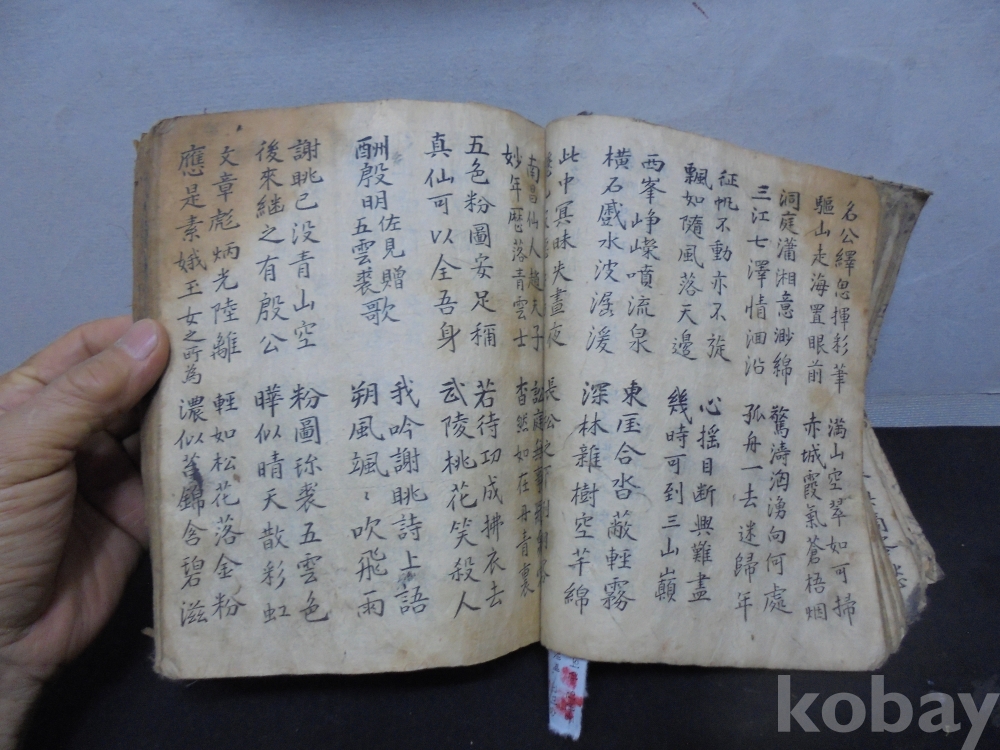 名公繹思揮彩筆
驅山走海置眼前
満山空翠如可掃
赤城霞氣蒼梧烟
洞庭瀟湘意渺綿
三江七澤情洄沿
驚濤洶湧向何處
孤舟一去迷歸年
征帆不動亦不旋
飄如隨風落天邊
心搖目断興難盡
幾時可到三山巔
西峯崢嶸噴流泉
橫石蹙水波潺湲
東厓合沓蔽輕霧
深林雜樹空芊綿
此中冥昧失晝夜
南昌仙人趙夫子
妙年歷落青雲士
訟庭無事
杳然如在丹青裏
五色粉圖安足稱
真仙可以全吾身
若待功成拂衣去
武陵桃花笑殺人
酬殷明佐見贈
五雲裘歌
我吟謝眺詩上語
朔風颯〻吹飛雨
謝眺已没青山空
後來継之有殷公
粉圖珎裘五雲色
曄似晴天散彩虹
文章彪炳光陸離
應是素娥玉女之所為
輕如松花落金粉
濃似苔錦含碧滋
kobay